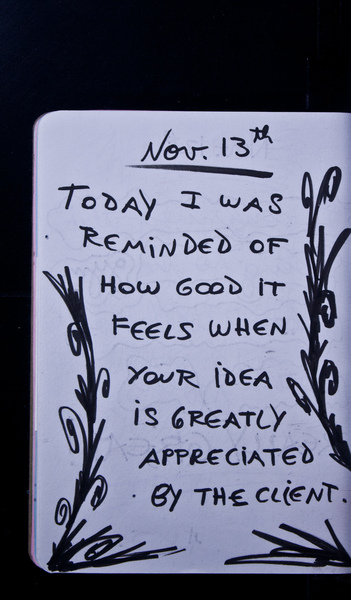 Nov. 13th
TODAY I WAS
REMINDED OF
HOW GOOD IT
FEELS WHEN
YOUR IDEA
IS GREATLY
APPRECIATED
BY THE CLIENT.